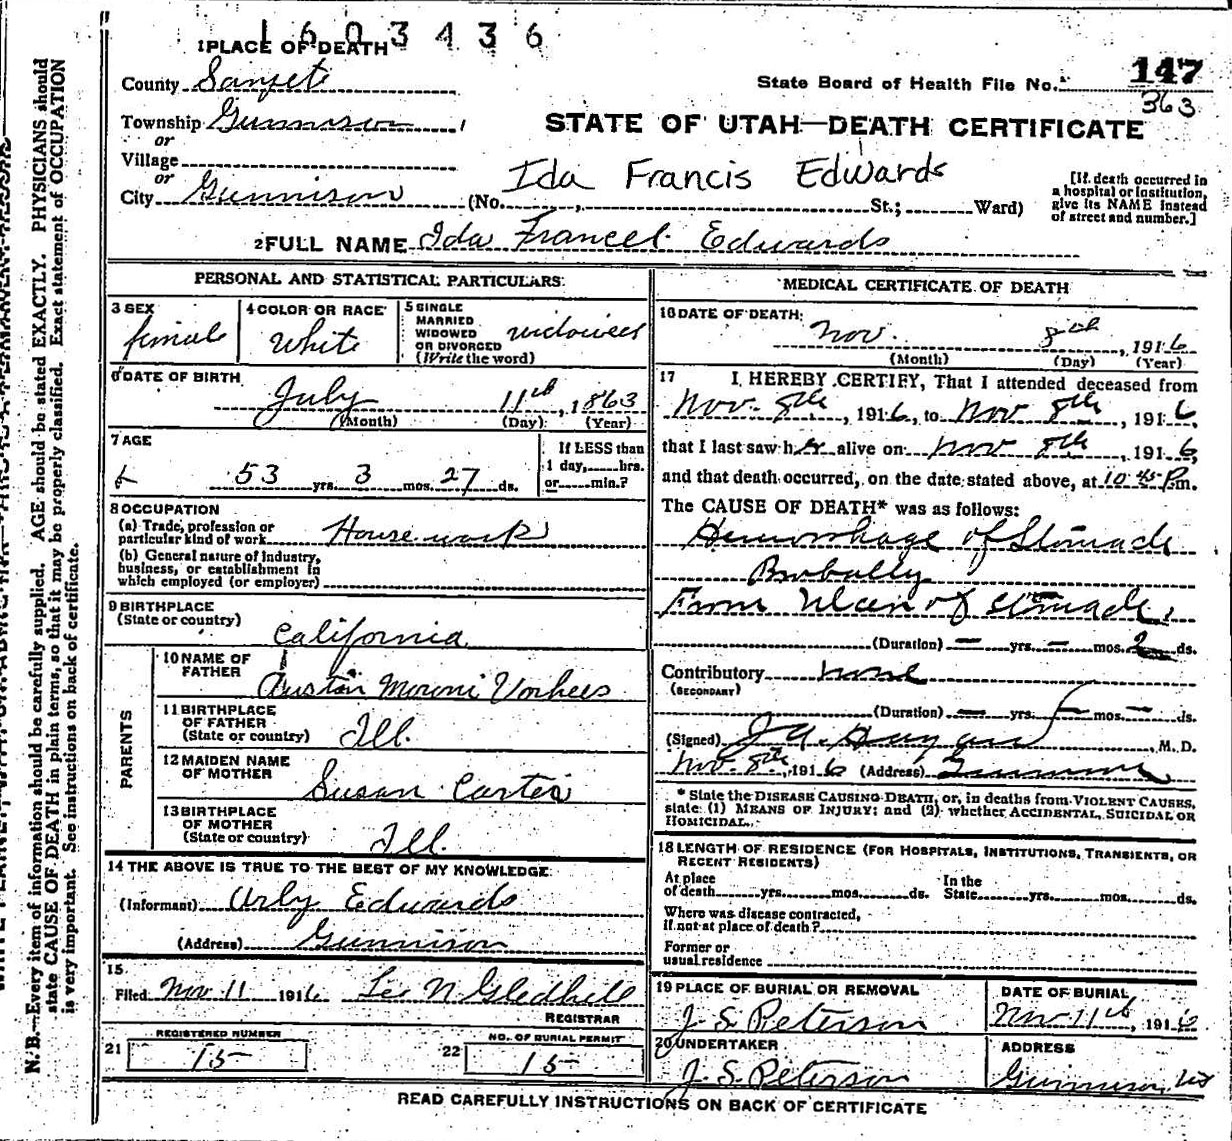 1603436
1 PLACE OF DEATH
County Sanpete
State Board of Health File No. 147
363
Township Gunnison
or
STATE OF UTAH—DEATH CERTIFICATE
Village
or
Ida Francis Edwards
City Gunnison (No. , St.; Ward)
[If death occurred in
a hospital or institution,
give its NAME instead
of street and number.]
2 FULL NAME Ida Francel Edwards
PERSONAL AND STATISTICAL PARTICULARS
3 SEX
female
4 COLOR OR RACE
White
5 SINGLE
MARRIED
WIDOWED
OR DIVORCED
(Write the word)
widowed
6 DATE OF BIRTH
July 11th, 1863
(Month) (Day) (Year)
7 AGE
53 yrs. 3 mos. 27 ds.
If LESS than
1 day, hrs.
or min.?
8 OCCUPATION
(a) Trade, profession or
particular kind of work House work
(b) General nature of Industry,
business, or establishment in
which employed (or employer)
9 BIRTHPLACE
(State or country)
California
PARENTS
10 NAME OF
FATHER
Austin Moroni Vorhees
11 BIRTHPLACE
OF FATHER
(State or country) Ill.
12 MAIDEN NAME
OF MOTHER
Susan Carter
13 BIRTHPLACE
OF MOTHER
(State or country) Ill.
14 THE ABOVE IS TRUE TO THE BEST OF MY KNOWLEDGE
(Informant) Urly Edwards
(Address) Gunnison
15
Filed Nov 11 1916 Leo N Gledhill
REGISTRAR
21 REGISTERED NUMBER
15
22 NO. OF BURIAL PERMIT
15
MEDICAL CERTIFICATE OF DEATH
16 DATE OF DEATH
Nov. 8th, 1916
(Month) (Day) (Year)
17 I HEREBY CERTIFY, That I attended deceased from
Nov. 8th, 1916, to Nov 8th, 1916,
that I last saw her alive on Nov 8th, 1916,
and that death occurred, on the date stated above, at 10 P.m.
The CAUSE OF DEATH* was as follows:
Hemorrhage of Stomach
Probally
From Ulcer of Stomach.
(Duration) — yrs. — mos. 2 ds.
Contributory none
(SECONDARY)
(Duration) — yrs. — mos. — ds.
(Signed) , M. D.
Nov. 8th, 1916 (Address) Gunnison
* State the DISEASE CAUSING DEATH, or, in deaths from VIOLENT CAUSES,
state (1) MEANS OF INJURY; and (2) whether ACCIDENTAL, SUICIDAL OR
HOMICIDAL.
18 LENGTH OF RESIDENCE (FOR HOSPITALS, INSTITUTIONS, TRANSIENTS, OR
RECENT RESIDENTS)
At place
of death yrs. mos. ds. In the
State yrs. mos. ds.
Where was disease contracted,
if not at place of death?
Former or
usual residence
19 PLACE OF BURIAL OR REMOVAL
J. S. Peterson
DATE OF BURIAL
Nov 11th, 1916
20 UNDERTAKER
J. S. Peterson
ADDRESS
Gunnison, Ut
READ CAREFULLY INSTRUCTIONS ON BACK OF CERTIFICATE
N. B.—Every item of information should be carefully supplied. AGE should be stated EXACTLY. PHYSICIANS should
state CAUSE OF DEATH in plain terms, so that it may be properly classified. Exact statement of OCCUPATION
is very important. See instructions on back of certificate.